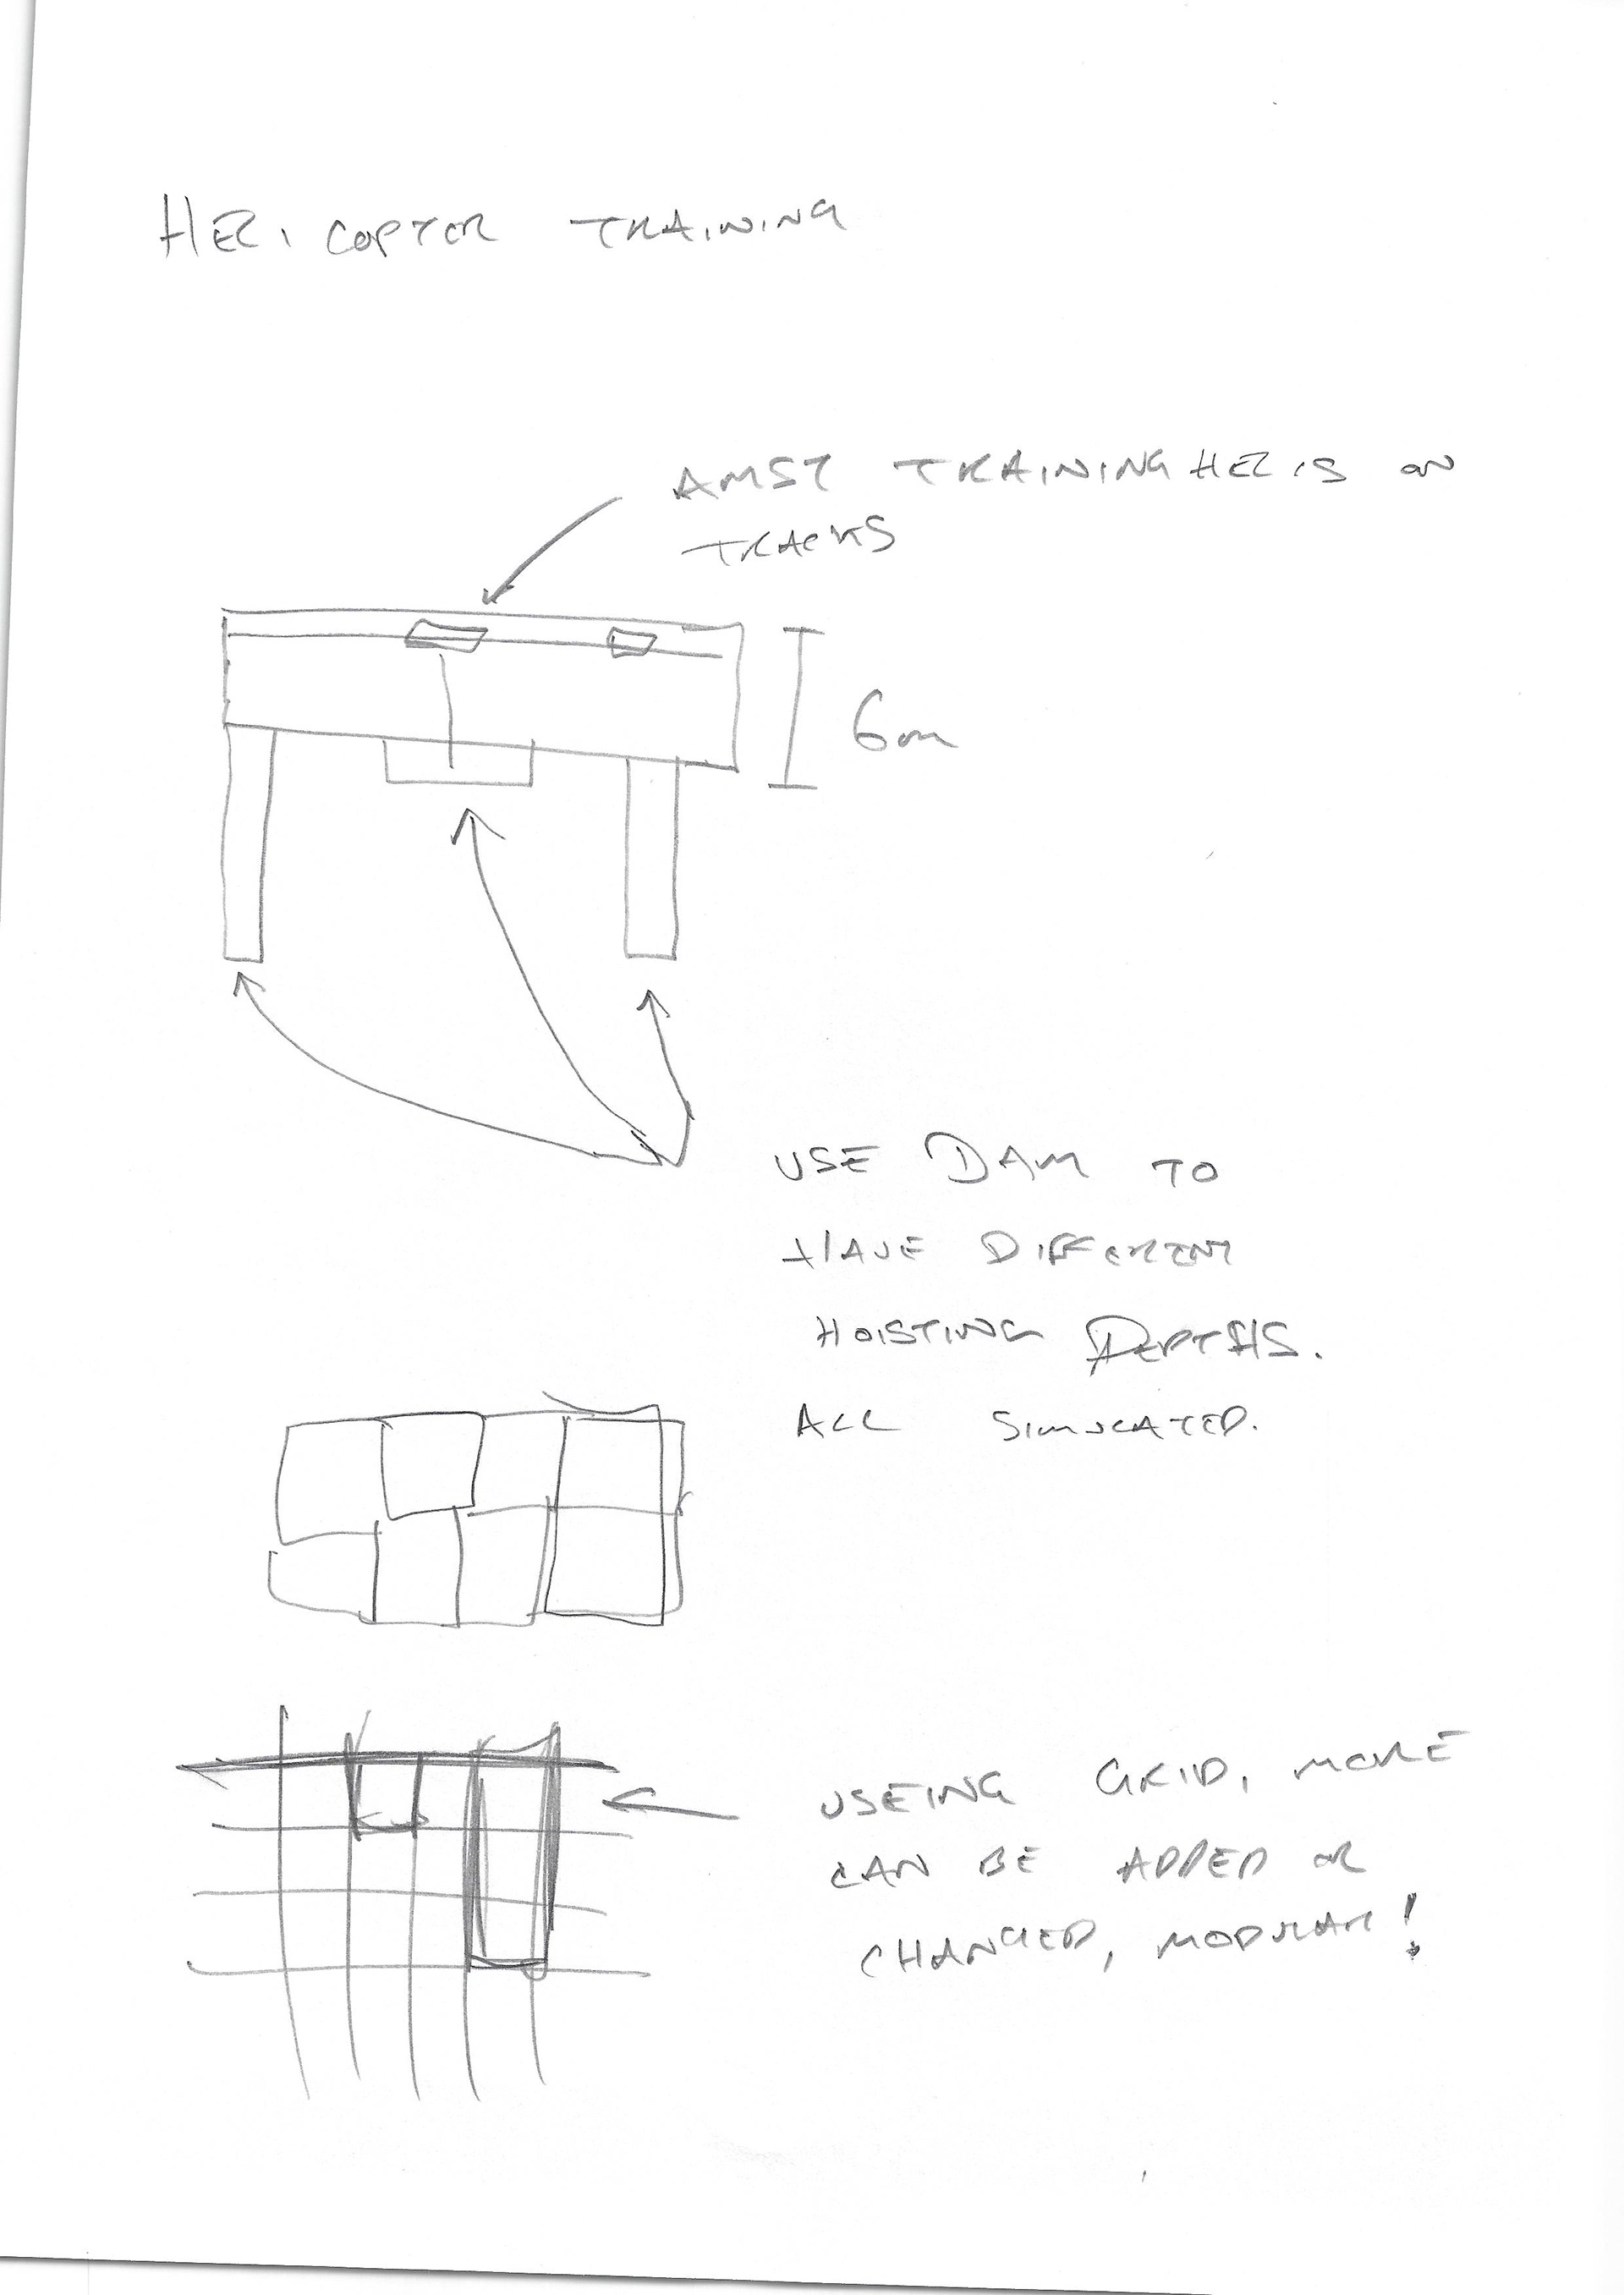 HELICOPTER TRAINING
AMST TRAINING HELIS ON
TRACKS
6m
USE DAM TO
HAVE DIFFERENT
HOISTING DEPTHS.
ALL SIMULATED.
USEING GRID, MORE
CAN BE ADDED OR
CHANGED, MODULAR!